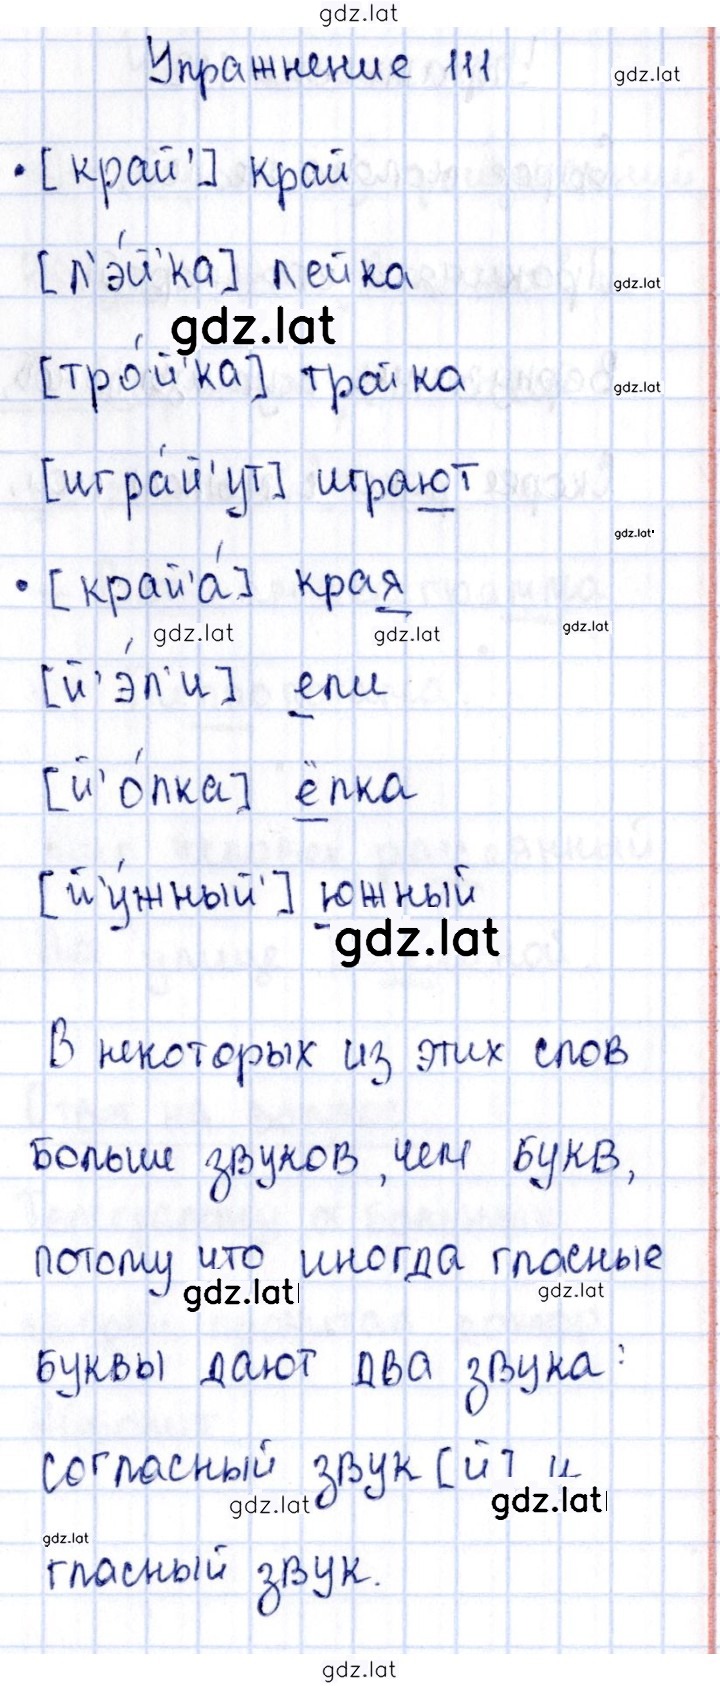 gdz.lat
Упражнение 111
gdz.lat
• [край'] край
[л'э́й'ка] лейка
gdz.lat
gdz.lat
[тро́й'ка] тройка
gdz.lat
[игра́й'ут] играют
gdz.lat
• [край'а́] края
gdz.lat gdz.lat gdz.lat
[й'э́л'и] ели
[й'о́лка] ёлка
[й'у́жный'] южный
gdz.lat
В некоторых из этих слов
больше звуков, чем букв,
потому что иногда гласные
gdz.lat gdz.lat
буквы дают два звука:
согласный звук [й'] и
gdz.lat gdz.lat
gdz.lat
гласный звук.
gdz.lat